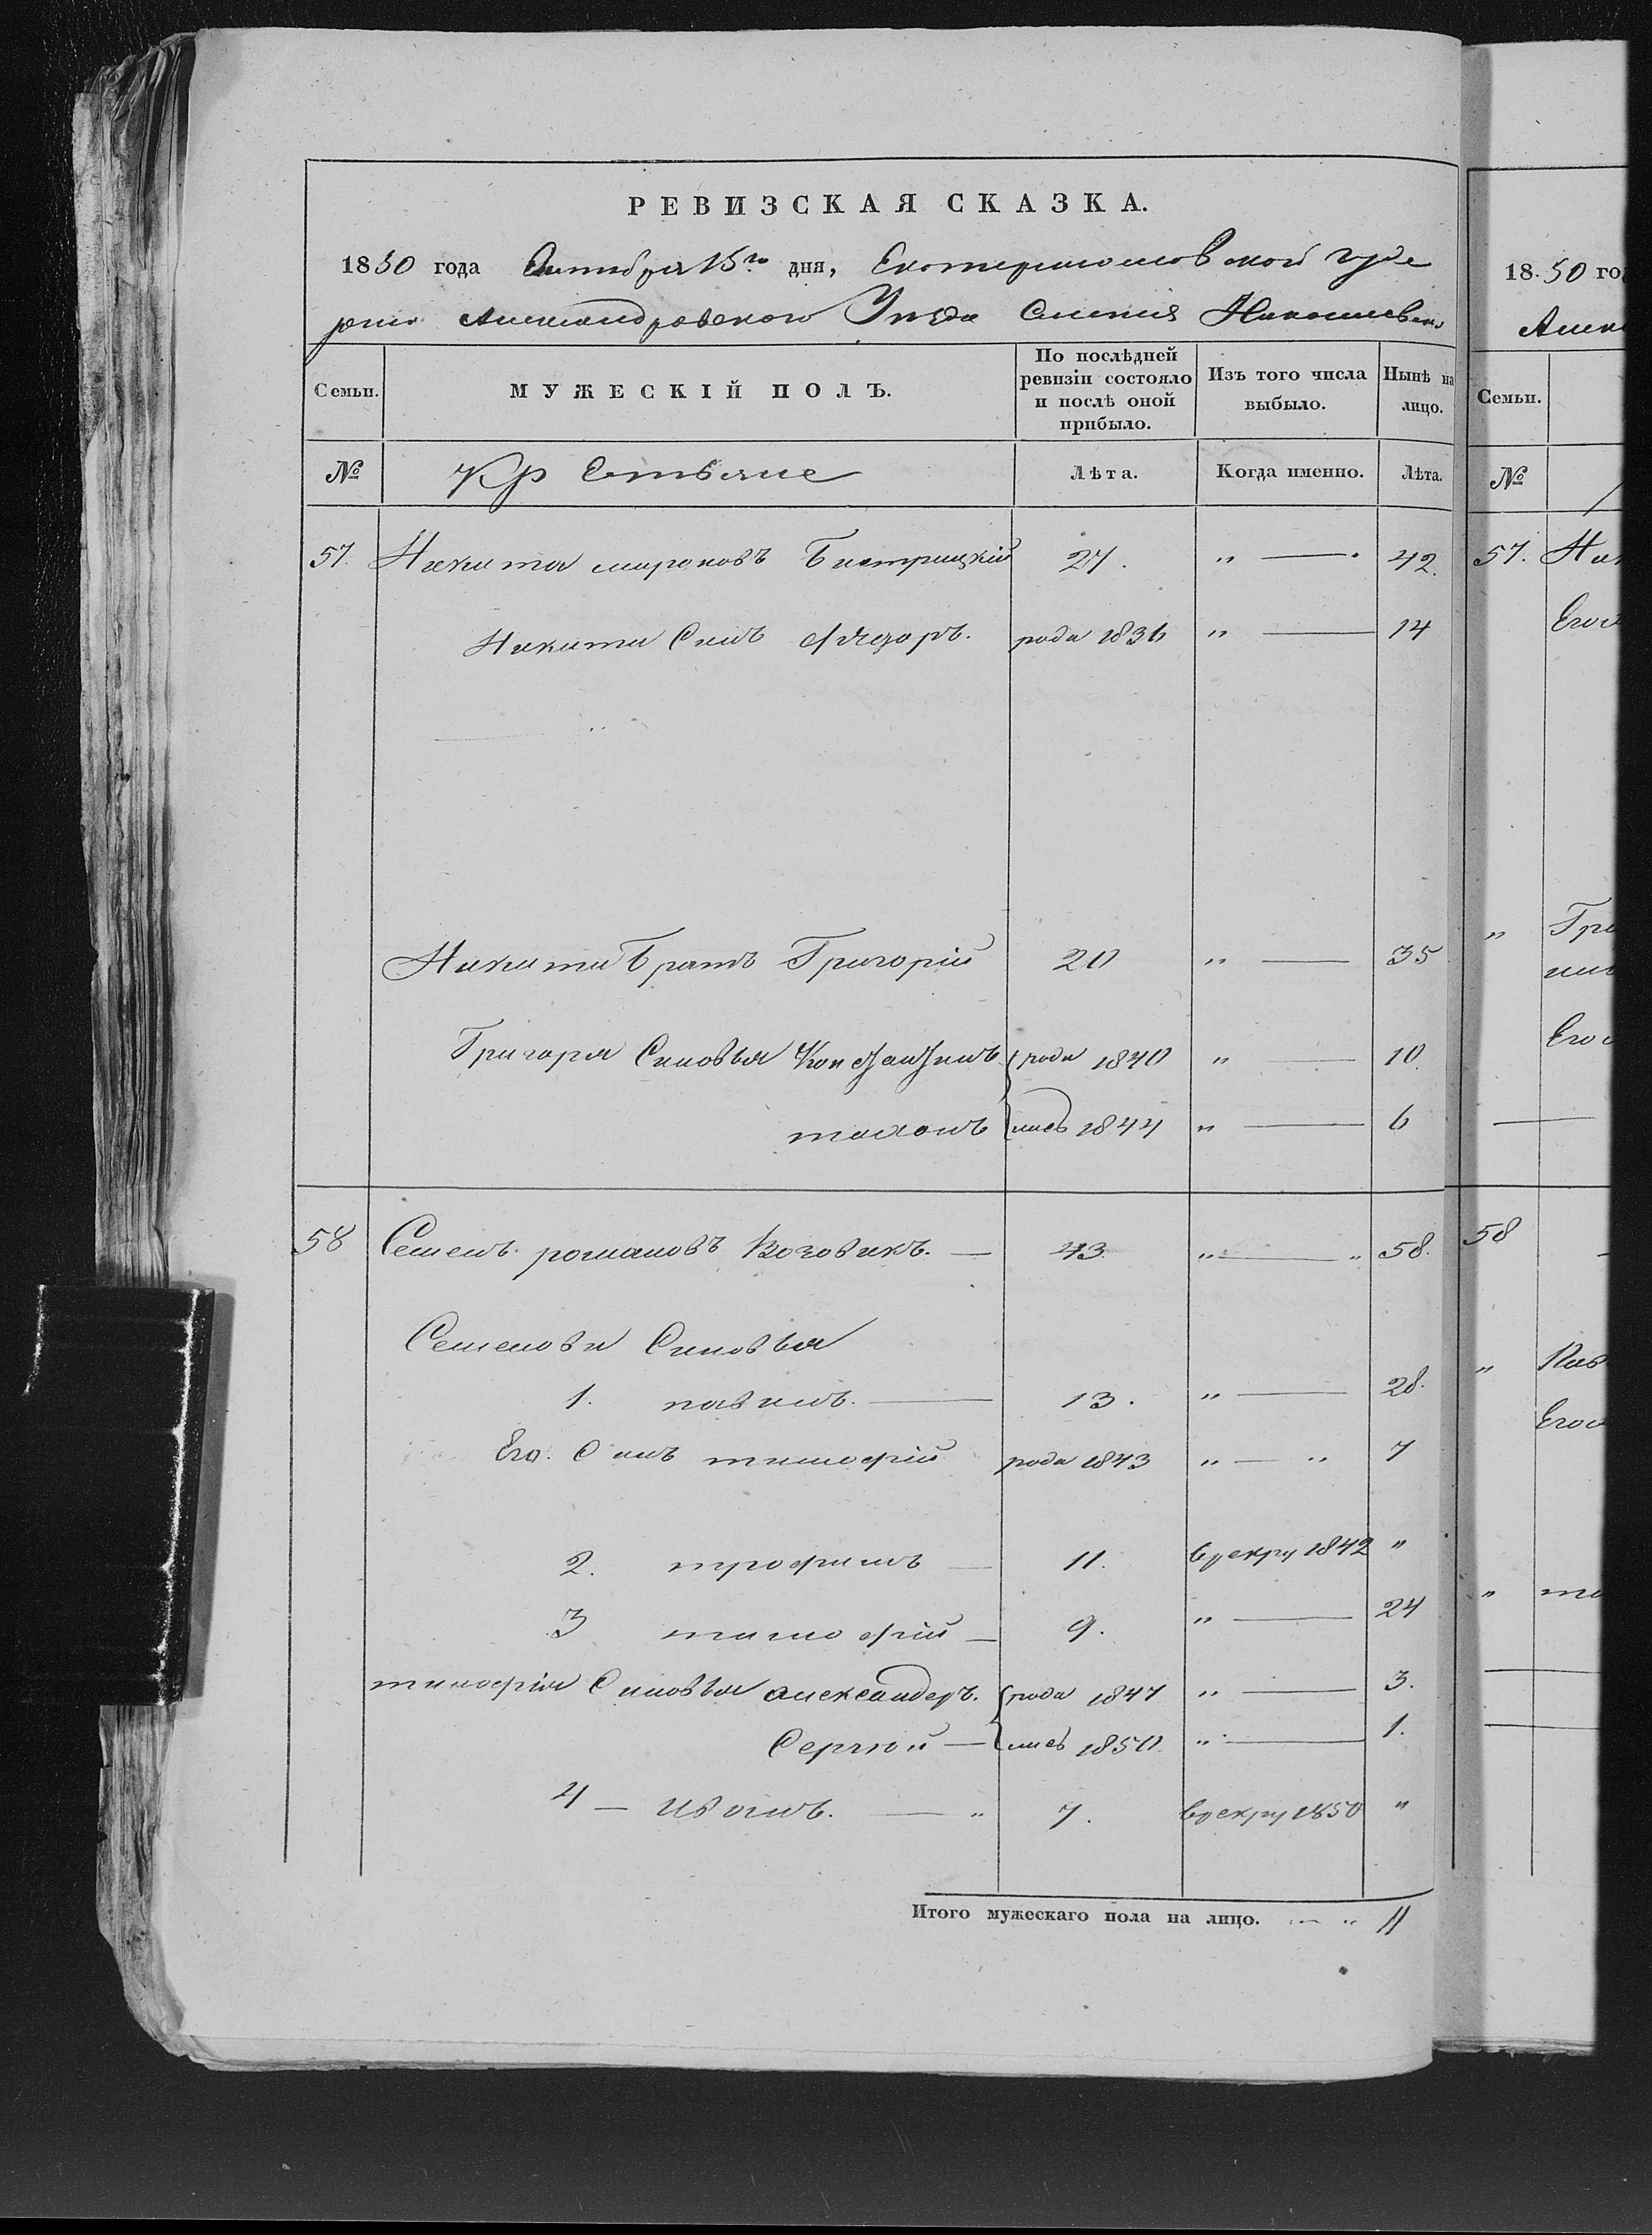 РЕВИЗСКАЯ СКАЗКА.
1850 года Октября 15го дня, Екатеринославской губе
рнии Александровского Уезда Селения Николаевки
Семьи. МУЖЕСКІЙ ПОЛЪ. По послѣдней ревизіи состояло и послѣ оной прибыло. Изъ того числа выбыло. Нынѣ на лицо.
№ Лѣта. Когда именно. Лѣта.
57. Никита мироновъ Бистрицкій 27. " — 42.
Никити Синъ родл 1836 " — 14
Никити Братъ Григорій 20 " — 35
Григорія Синовья Константинъ родл 1840 " — 10.
лись 1844 " — 6
58 Семенъ романовъ Возовикъ. — 43. " — " 58.
Семенови Синовья
1. павилъ. — 13. " — 28.
Его. Синъ тимофій родл 1843 " — " 7
2. трофимъ — 11. в рекру 1842 "
3 тимофій — 9. " — 24
тимофія Синовья александеръ. родл 1847 " — 3.
Сергюй — лись 1850. " — 1.
4 — иванъ. — " 7. в рекру 1850 "
Итого мужескаго пола на лицо. 11
18.50 го
Семьи.
№
57.
Его
"
Его
58
"
Его
"